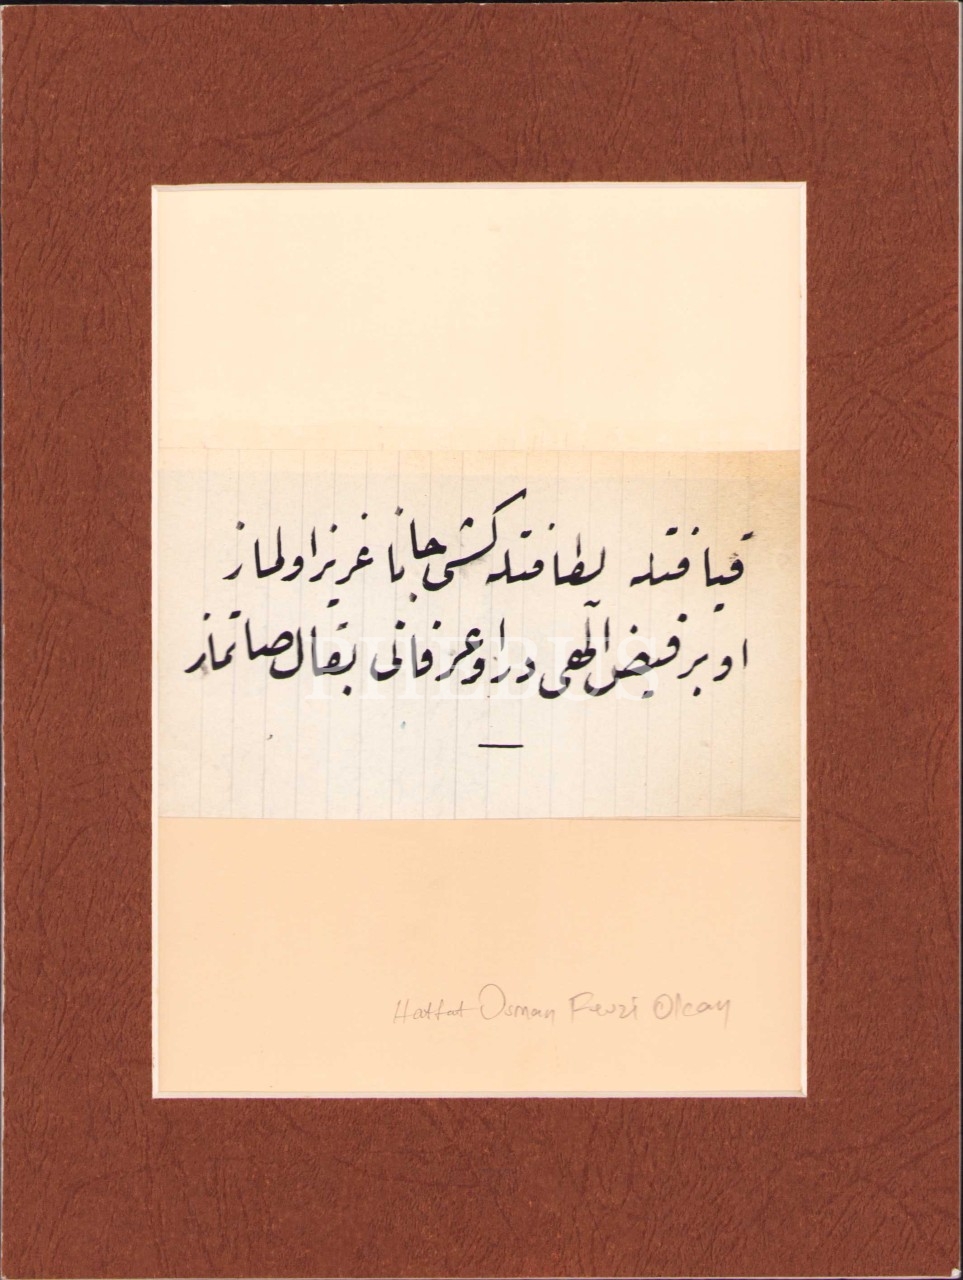 قيافتله لطافتله كشی جانا عزيز اولماز
او بر فيض الٓهی در او عرفانی بقال صاتماز
PHEBUS
Hattat Osman Fevzi Olcay